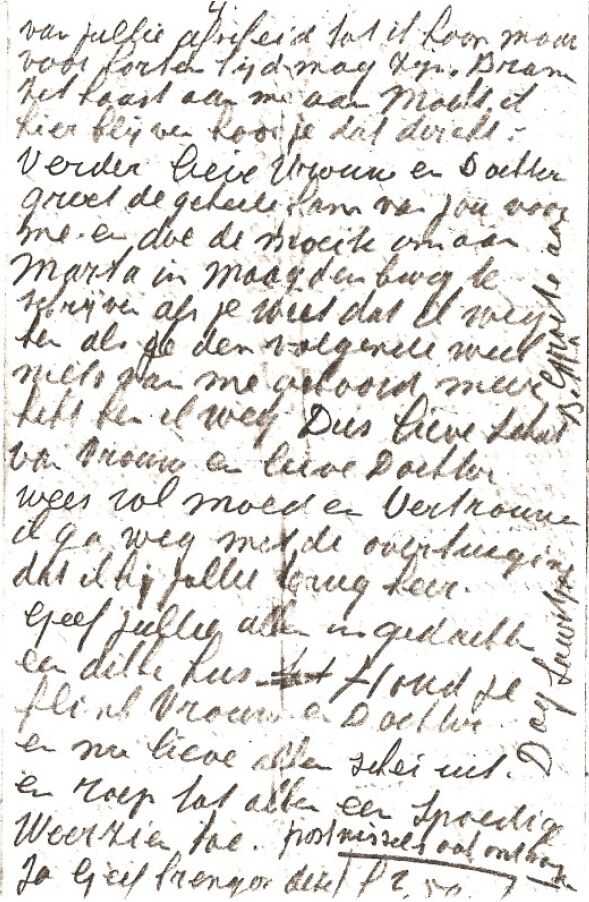 4
van jullie afscheid tot ik hoop maar
voor korten tijd mag zijn. Bram
zet haast aan me aan Mocht ik
hier blijven hoor je dat direkt.
Verder lieve Vrouw en Dochter
groet de geheele fam van jou voor
me en doe de moeite om aan
Marta in Maagdenburg te
schrijven als je weet dat ik weg
ben als je den volgende week
niets van me gehoord meer
hebt ben ik weg Dus lieve schat
van Vrouw en lieve Dochter
wees vol moed en Vertrouwen
ik ga weg met de overtuiging
dat ik bij jullie terug keer.
Geef jullie allen in gedachten
een dikke kus Houd je
flink Vrouw en Dochter.
en nu lieve allen schei uit.
en roep tot allen een spoedig
Weerzien toe. postwissels ook
Ja Geef brenger deze f 2,50
Dag